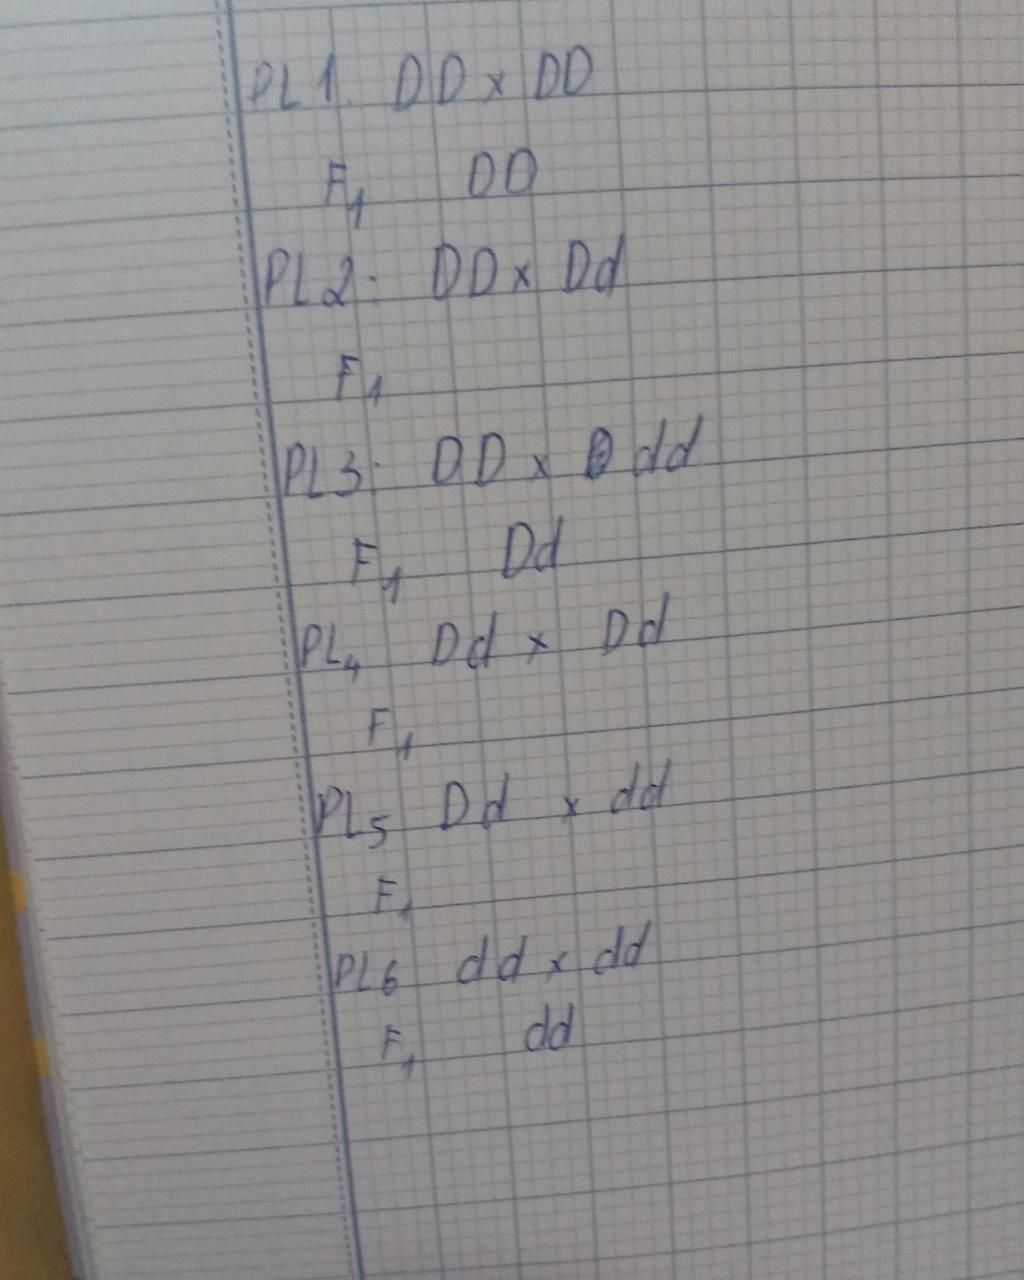 PL1. DD x DD
F₁ DD
PL2: DD x Dd
F₁
PL3: DD x dd
F₁ Dd
PL₄ Dd x Dd
F₁
PL₅ Dd x dd
F₁
PL6 dd x dd
F₁ dd